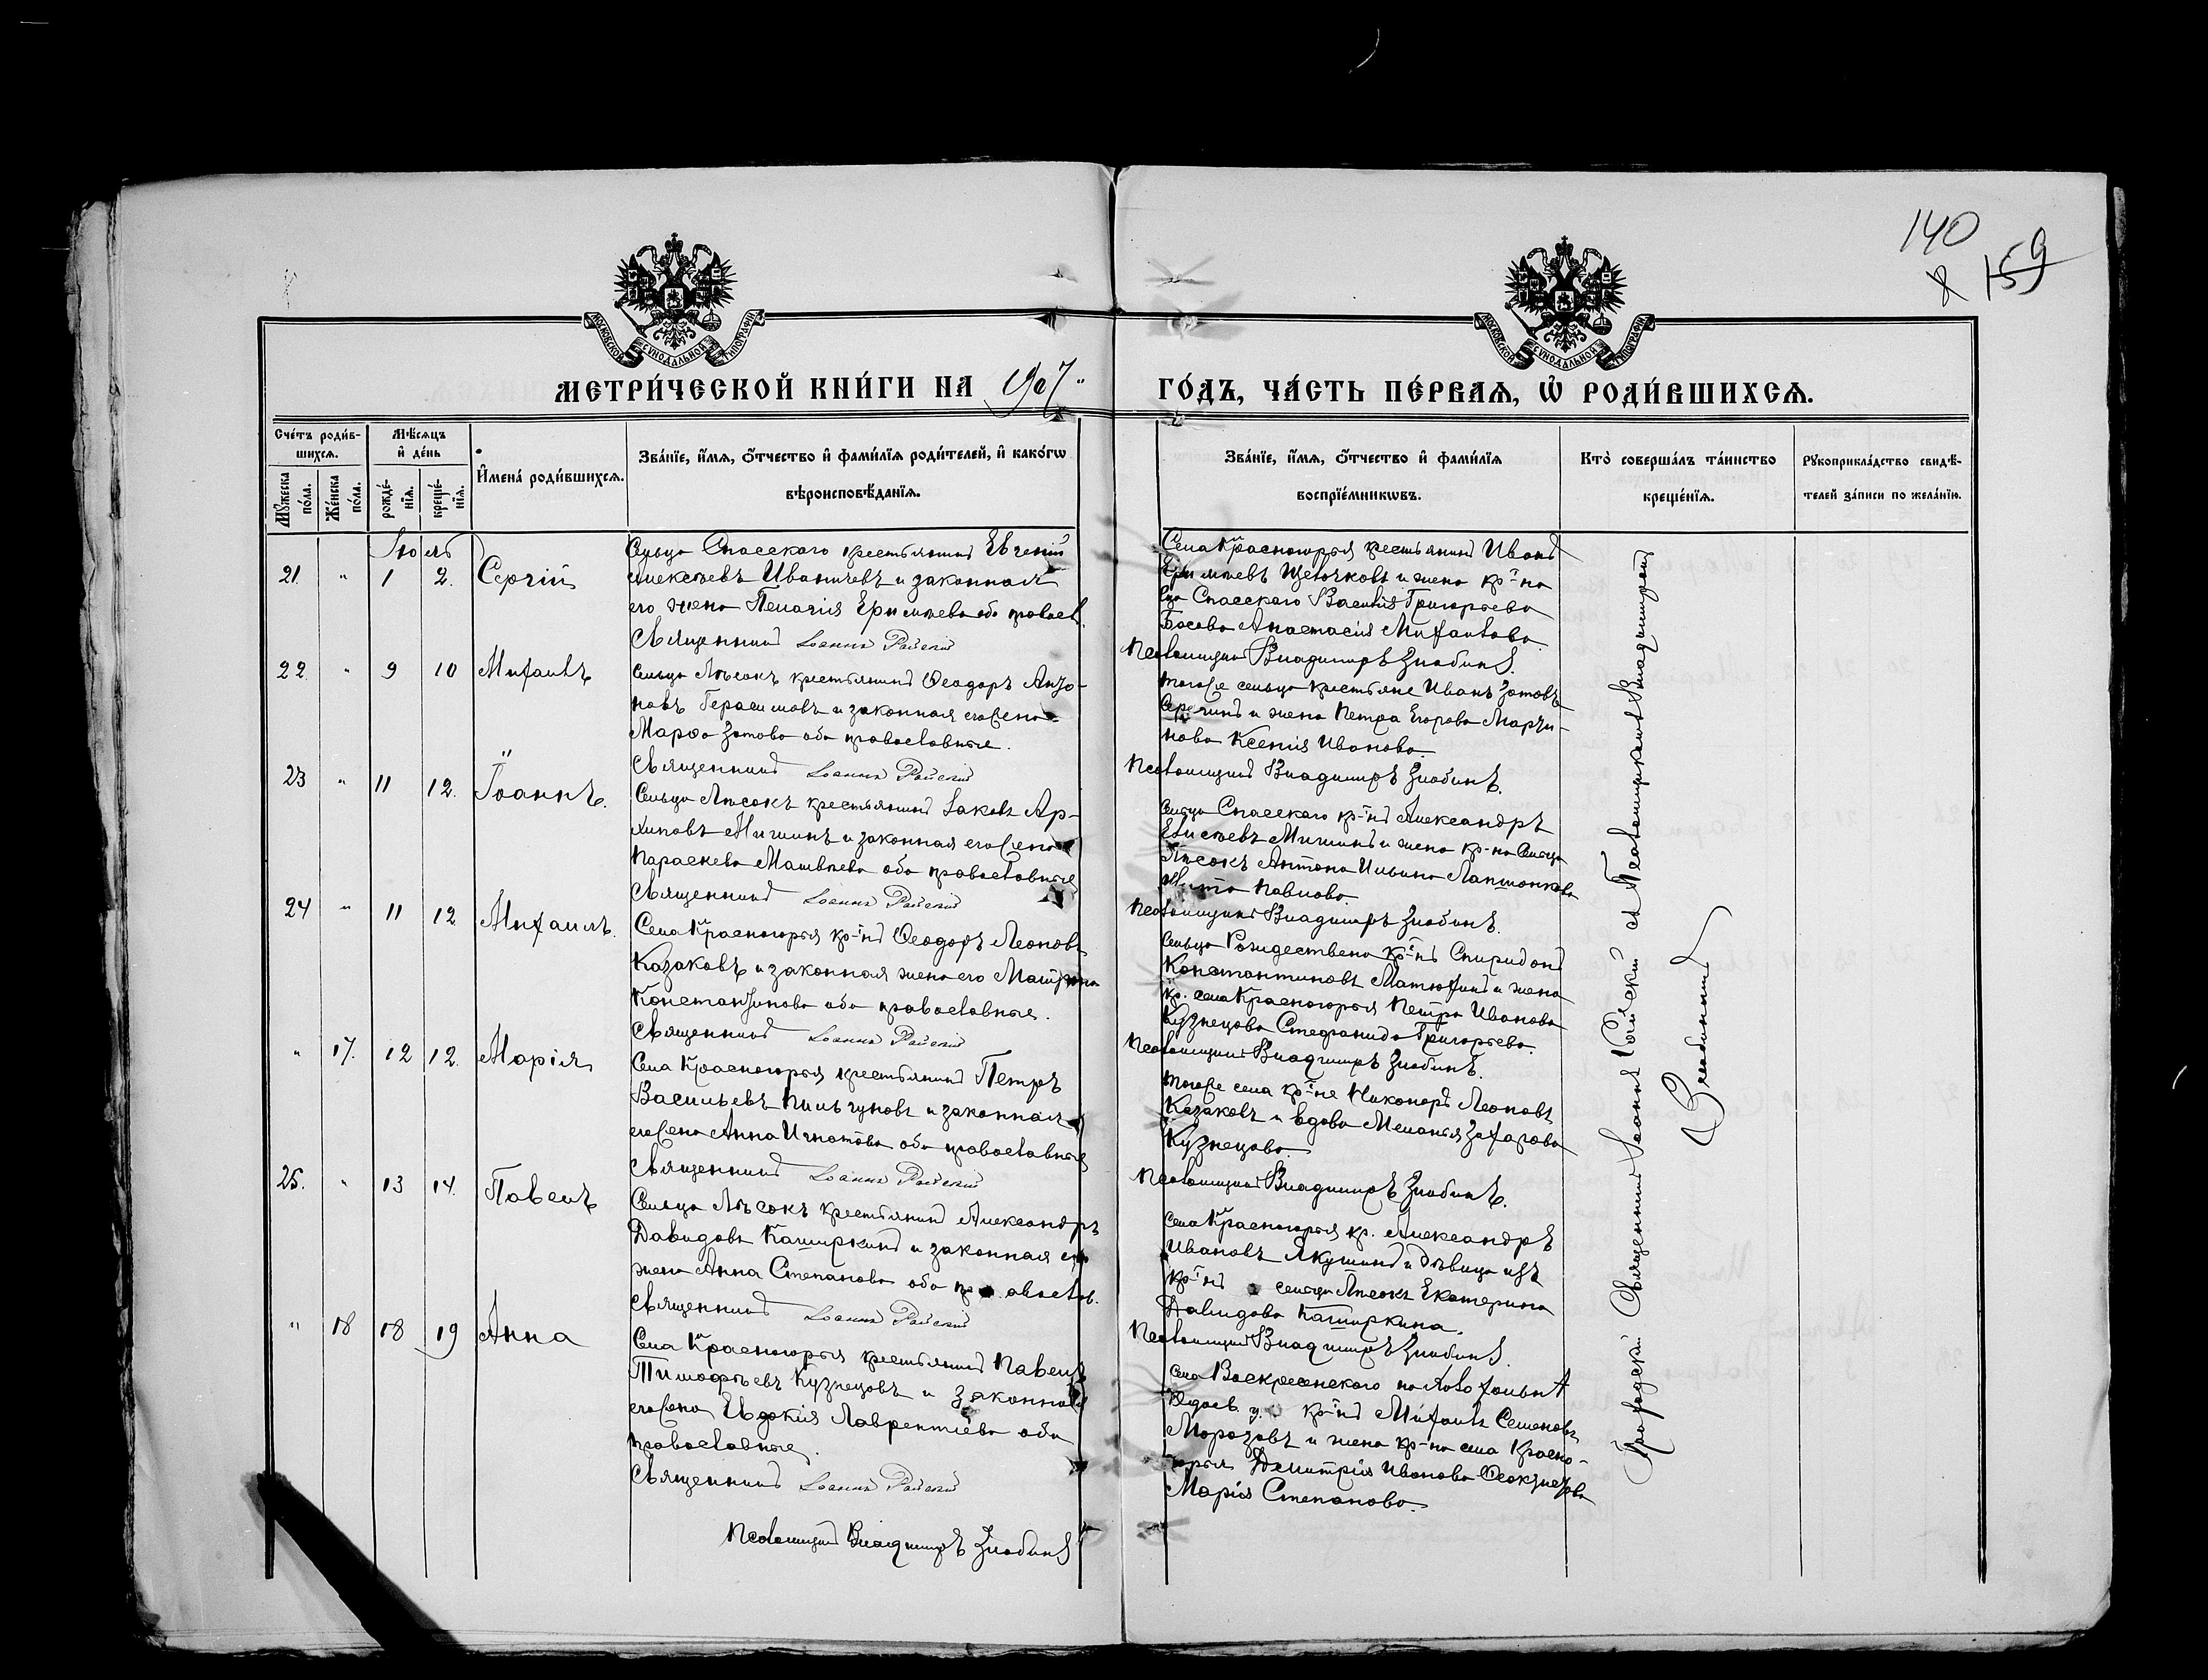 140
159
МОСКОВСКОЙ СѴНОДАЛЬНОЙ ТИПОГРАФІИ
МОСКОВСКОЙ СѴНОДАЛЬНОЙ ТИПОГРАФІИ
МЕТРИ́ЧЕСКОЙ КНИ́ГИ НА 1907 ГО́ДЪ, ЧА́СТЬ ПЕ́РВАѦ, Ѡ РОДИ́ВШИХСѦ.
Сче́тъ роди́в-
шихсѧ.
Мꙋ́жеска по́ла.
Же́нска по́ла.
Мѣ́сѧцъ
и҆ де́нь
рожде́-
нїѧ.
креще́-
нїѧ.
И҆мена̀ роди́вшихсѧ.
Зва́нїе, и҆́мѧ, ѻ҆́тчество и҆ фами́лїѧ роди́телей, и҆ како́гѡ
вѣроисповѣ́данїѧ.
Зва́нїе, и҆́мѧ, ѻ҆́тчество и҆ фами́лїѧ
воспрїе́мникѡвъ.
Кто̀ соверша́лъ та́инство
креще́нїѧ.
Рꙋкоприкла́дство свидѣ́-
телей за́писи по жела́нїю.
Іюль
21. " 1 2. Сергій
Сельца Спасскаго крестьянинъ Евгений
Алексѣевъ Иваничевъ и законная
его жена Пелагія Ермилова оба правосл.
Священникъ Іоаннъ Райский
Села Красногорья крестьянинъ Иванъ
Щеточковъ и жена кр-на
Спасскаго Василія Григорьева
Босова Анастасія Михайлова
Псаломщикъ Владимиръ Злобинъ.
22. " 9 10 Михаилъ
Сельца Лѣсокъ крестьянинъ Ѳеодоръ Анто-
новъ Герасимовъ и законная его жена
Марѳа Зотова оба православные.
Священникъ Іоаннъ Райский
тогоже сельца крестьяне Иванъ Зотовъ
и жена Петра Егорова Марты-
нова Ксенія Иванова.
Псаломщикъ Владимиръ Злобинъ.
23 " 11 12. Іоаннъ.
Сельца Лѣсокъ крестьянинъ Іаковъ Ар-
хиповъ Мишинъ и законная его жена
Параскева Матвѣева оба православные
Священникъ Іоаннъ Райский
Сельца Спасскаго кр-нъ Александръ
Елисѣевъ Мишинъ и жена кр-на Сельца
Лѣсокъ Антона Ильина Лапшонкова
Павлова.
Псаломщикъ Владимиръ Злобинъ.
24 " 11 12 Михаилъ.
Села Красногорья кр-нъ Ѳеодоръ Леоновъ
Казаковъ и законная жена его Матрона
Константинова оба православные.
Священникъ Іоаннъ Райский
Сельца Рождествена кр-нъ Спиридонъ
Константиновъ Матюхинъ и жена
кр. села Красногорья Петра Иванова
Кузнецова Стефанида Григорьева.
Псаломщикъ Владимиръ Злобинъ.
" 17. 12 12. Марія
Села Красногорья крестьянинъ Петръ
Васильевъ Пильгуновъ и законная
его жена Анна Игнатова оба православные
Священникъ Іоаннъ Райский
тогоже села кр-не Никаноръ Леоновъ
Казаковъ и вдова Меланья Захарова
Кузнецова.
Псаломщикъ Владимиръ Злобинъ.
25. " 13 14. Павелъ
Сельца Лѣсокъ крестьянинъ Александръ
Давидовъ Каширкинъ и законная его
жена Анна Степанова оба православ.
Священникъ Іоаннъ Райский
Села Красногорья кр. Александръ
Ивановъ Якушинъ и дѣвица изъ
кр-нъ сельца Лѣсокъ Екатерина
Давидова Каширкина.
Псаломщикъ Владимиръ Злобинъ.
" 18 18 19 Анна
Села Красногорья крестьянинъ Павелъ
Тимофѣевъ Кузнецовъ и законная
его жена Евдокія Лаврентіева оба
православные.
Священникъ Іоаннъ Райский
Села Воскресенскаго
кр-нъ Михаилъ Семеновъ
Морозовъ и жена кр-на села Красно-
горья Димитрія Иванова
Марія Степанова.
Псаломщикъ Владимиръ Злобинъ
Священникъ Іоаннъ Райский съ Псаломщикомъ Владимиромъ
Злобинымъ